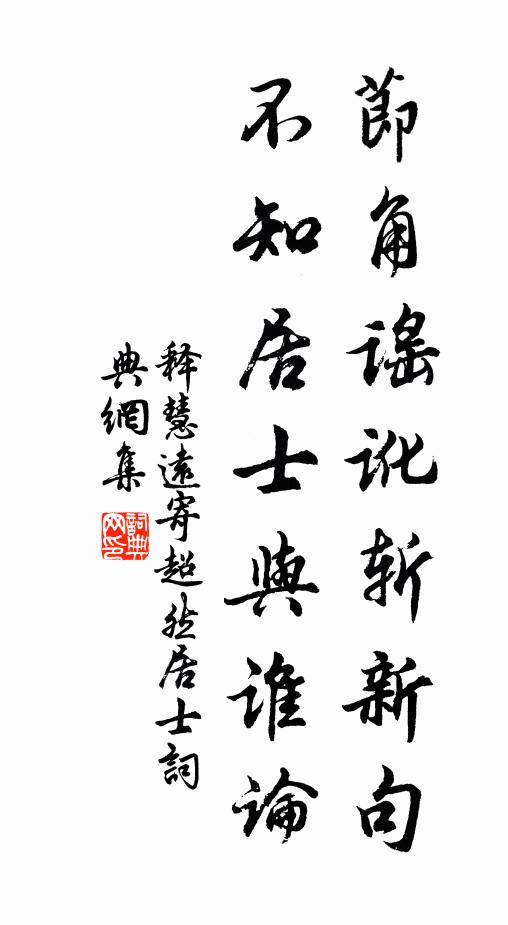 莭角謡訛斬新句
不知居士與誰論
释慧遠寄超然居士詞
典網集
詞典網印